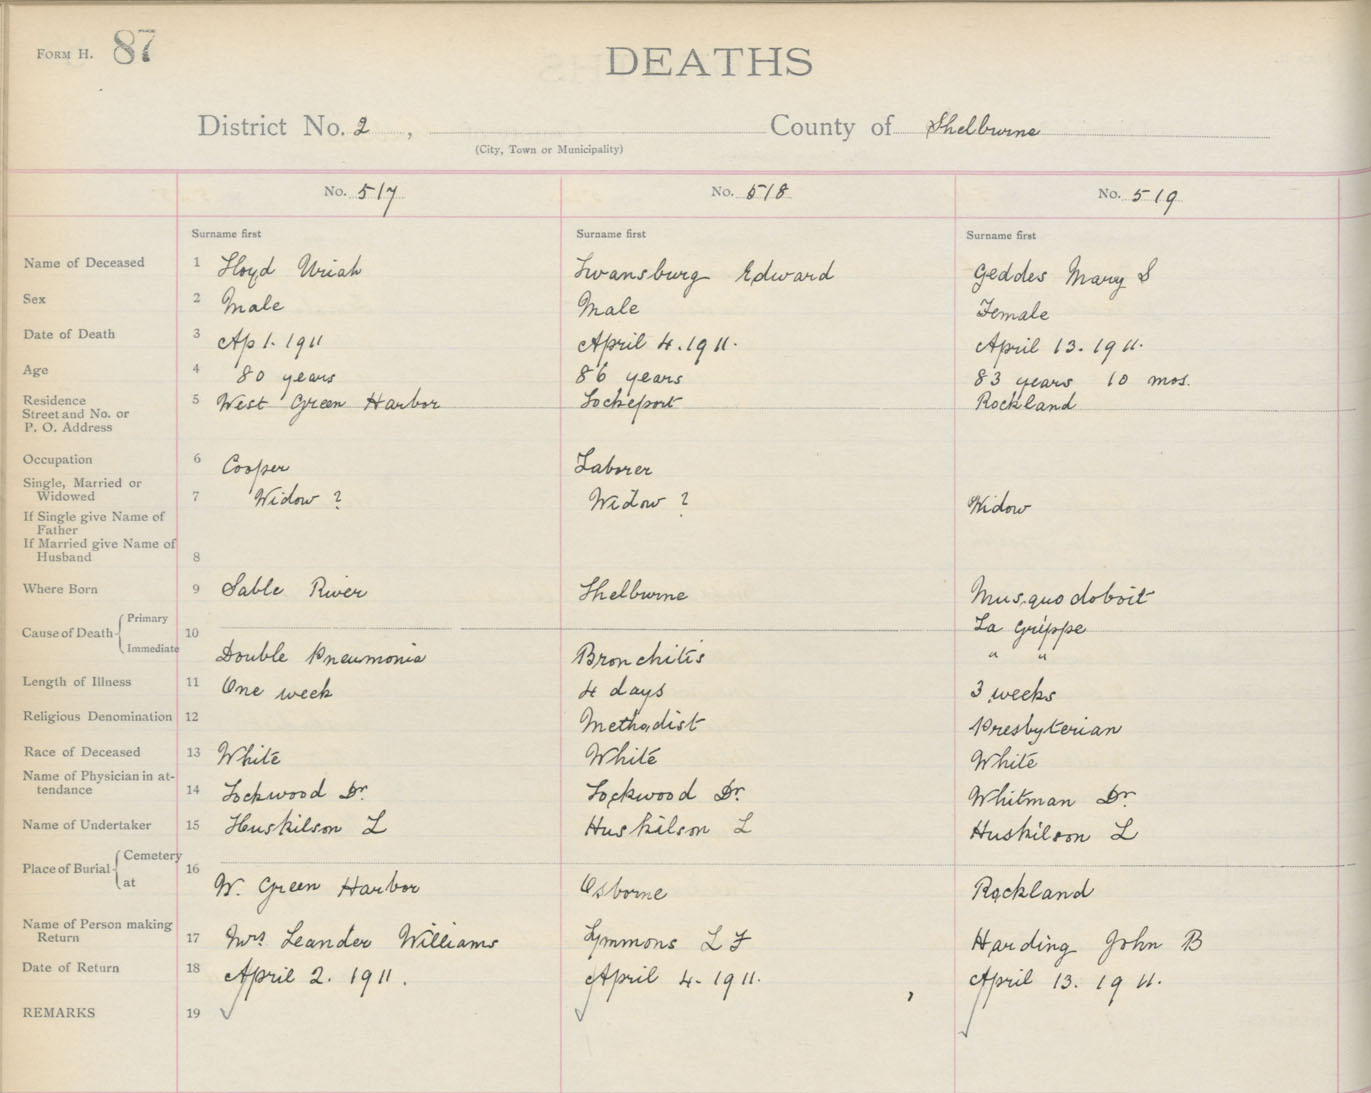 FORM H. 87
DEATHS
District No. 2 , County of Shelburne
(City, Town or Municipality)
No. 517 No. 518 No. 519
Surname first Surname first Surname first
Name of Deceased 1 Lloyd Uriah Swansburg Edward Geddes Mary S
Sex 2 Male Male Female
Date of Death 3 Ap 1. 1911 April 4. 1911. April 13. 1911.
Age 4 80 years 86 years 83 years 10 mos.
Residence 5 West Green Harbor Lockeport Rockland
Street and No. or
P. O. Address
Occupation 6 Cooper Laborer
Single, Married or
Widowed 7 Widow ? Widow ? Widow
If Single give Name of
Father
If Married give Name of
Husband 8
Where Born 9 Sable River Shelburne Musquodoboit
Primary La Grippe
Cause of Death 10
Immediate Double Pneumonia Bronchitis " "
Length of Illness 11 One week 4 days 3 weeks
Religious Denomination 12 Methodist Presbyterian
Race of Deceased 13 White White White
Name of Physician in at-
tendance 14 Lockwood Dr. Lockwood Dr. Whitman Dr.
Name of Undertaker 15 Huskilson L Huskilson L Huskilson L
Cemetery
Place of Burial 16
at W. Green Harbor Osborne Rockland
Name of Person making
Return 17 Mrs Leander Williams Symmons L F Harding John B
Date of Return 18 April 2. 1911. April 4. 1911. April 13. 1911.
REMARKS 19